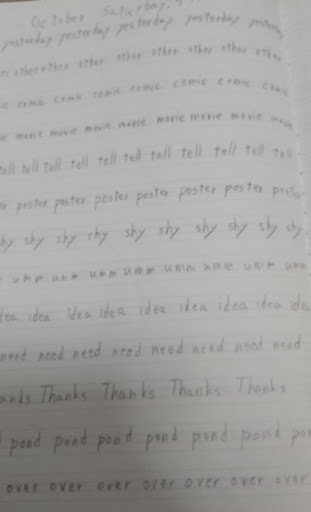 October Saturday.
yesterday yesterday yesterday yesterday yesterday
other other other other other other other other
comic comic comic comic comic comic
movie movie movie movie movie movie movie
tell tell tell tell tell tell tell tell tell tell
poster poster poster poster poster poster
shy shy shy shy shy shy shy shy shy
umm umm umm umm umm umm umm umm
idea idea idea idea idea idea idea idea
need need need need need need need need
Thanks Thanks Thanks Thanks
pond pond pond pond pond pond
over over over over over over over